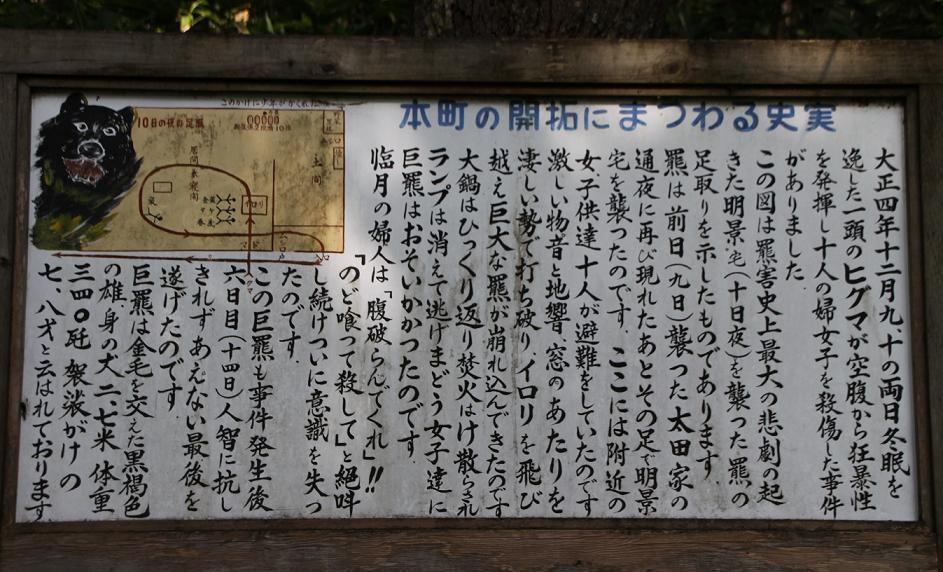 本町の開拓にまつわる史実
大正四年十二月九、十の両日冬眠を
逸した一頭のヒグマが空腹から狂暴性
を発揮し十人の婦女子を殺傷した事件
がありました
この図は羆害史上最大の悲劇の起
きた明景宅(十日夜)を襲った羆の
足取りを示したものであります
羆は前日(九日)襲った太田家の
通夜に再び現れたあとその足で明景
宅を襲ったのです ここには附近の
女、子供達十人が避難をしていたのです
激しい物音と地響、窓のあたりを
凄しい勢で打ち破り、イロリを飛び
越え巨大な羆が崩れ込んできたのです
大鍋はひっくり返り焚火はけ散らされ
ランプは消えて逃げまどう女子達に
巨羆はおそいかかったのです
臨月の婦人は「腹破らんでくれ」!!
「のど喰って殺して」と絶叫
し続けついに意識を失っ
たのです
この巨羆も事件発生後
六日目(十四日)人智に抗し
きれずあえない最後を
遂げたのです
巨羆は金毛を交えた黒褐色
の雄、身の丈二、七米 体重
三四〇瓩 袈裟がけの
七、八才と云はれております
このかげに少年がかくれた
10日の夜の足跡
土間
居間兼寝間
イロリ
マド